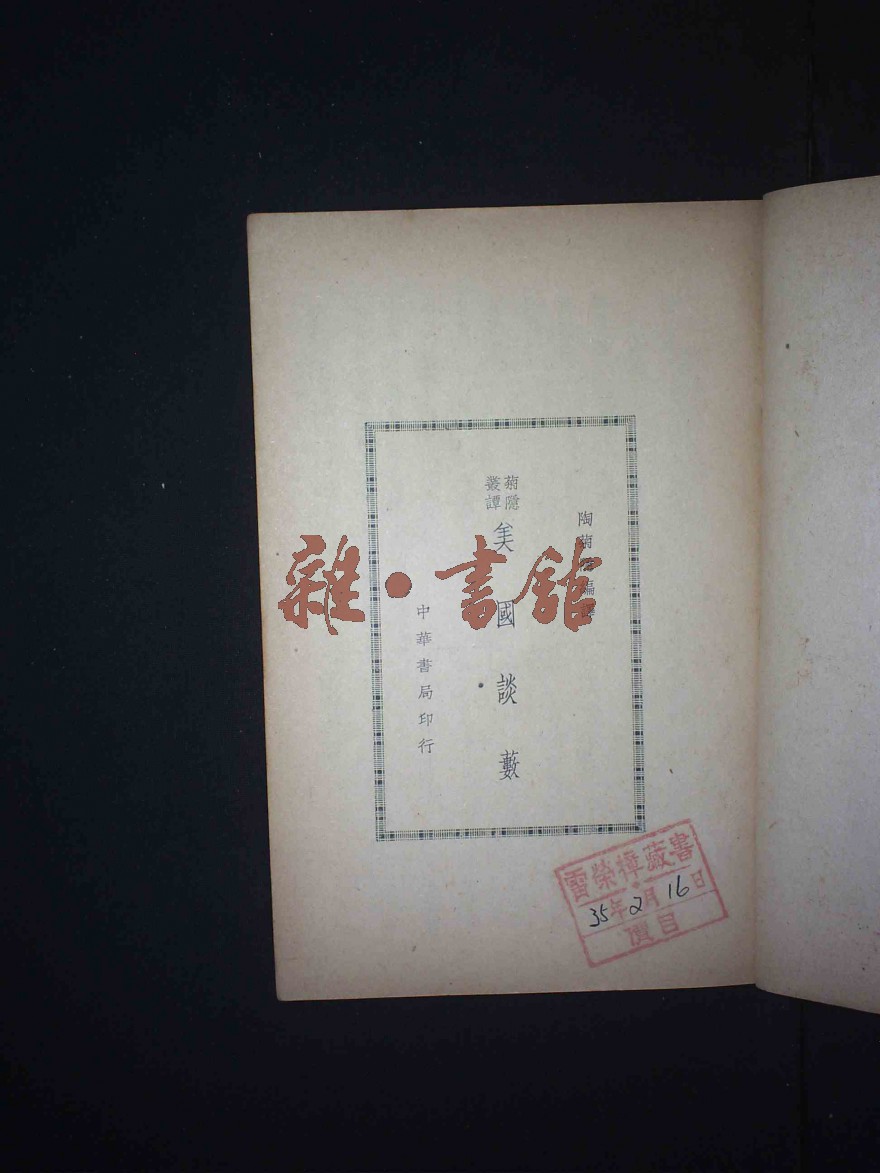 陶菊隱編譯
菊隱
叢譚
美國談藪
中華書局印行
雜·書舘
雷榮樟藏書
35年2月16日